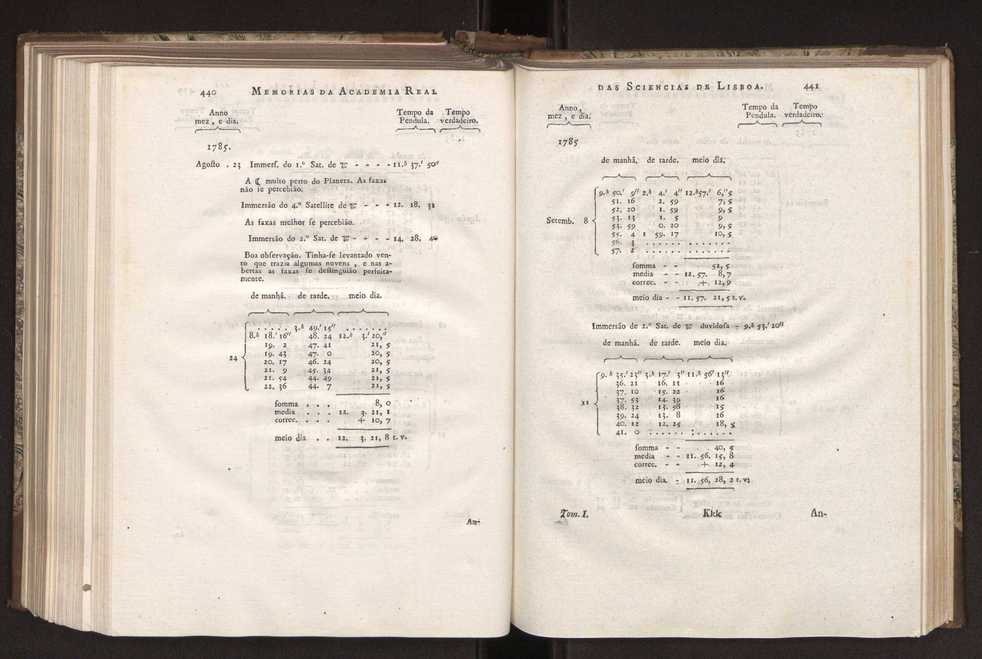 440 MEMORIAS DA ACADEMIA REAL
Anno Tempo da Tempo
mez, e dia. Pendula. verdadeiro.
1785.
Agosto . 23 Immers. do 1.º Sat. de ♃ - - - - 11.h 37.′ 50″
A ☾ muito perto do Planeta. As faxas
não se percebião.
Immersão do 4.º Satellite de ♃ - - - 12. 18. 31
As faxas melhor se percebião.
Immersão do 2.º Sat. de ♃ - - - - 14. 28. 40
Boa observação. Tinha-se levantado ven-
to que trazia algumas nuvens, e nas a-
bertas as faxas se destinguião perfeita-
mente.
de manhã. de tarde. meio dia.
. . . . . . 3.h 49.′ 15″ . . . . . . .
8.h 18.′ 16″ 48. 24 12.h 3.′ 20,″
19. 2 47. 41 21, 5
19. 43 47. 0 20, 5
24 20. 17 46. 24 20, 5
21. 9 45. 34 21, 5
21. 54 44. 49 21, 5
22. 36 44. 7 21, 5
somma . . . 8, 0
media . . . 12. 3. 21, 1
correc. . . . + 10, 7
meio dia . . 12. 3. 21, 8 t. v.
An-
DAS SCIENCIAS DE LISBOA. 441
Anno, Tempo da Tempo
mez, e dia. Pendula. verdadeiro.
1785
de manhã, de tarde. meio dia.
9.h 50.′ 9″ 2.h 4.′ 4″ 12.h 57.′ 6,″5
51. 16 2. 59 7, 5
52. 20 1. 59 9, 5
Setemb. 8 53. 13 1. 5 9
53. 59 0. 20 9, 5
55. 4 1 59. 17 10, 5
56. 3 . . . . . . . . . . . . .
57. 2 . . . . . . . . . . . . .
somma - - 52, 5
media - - 12. 57. 8, 7
correc. - - + 12, 9
meio dia - - 11. 57. 21, 5 t. v.
Immersão do 2.º Sat. de ♃ duvidosa - 9.h 53.′ 20″
de manhã. de tarde. meio dia.
9.h 35.′ 23″ 3.h 17.′ 3″ 11.h 56′ 13″
36. 21 16. 11 16
37. 10 15. 22 16
37. 53 14. 39 16
11 38. 32 13. 58 15
39. 24 13. 8 16
40. 12 12. 25 18, 5
41. 0 . . . . . . . . . . . .
somma - - 40, 5
media - - 11. 56. 15, 8
correc. - - + 12, 4
meio dia. - 11. 56, 28, 2 t. v.
Tom. I. Kkk An-